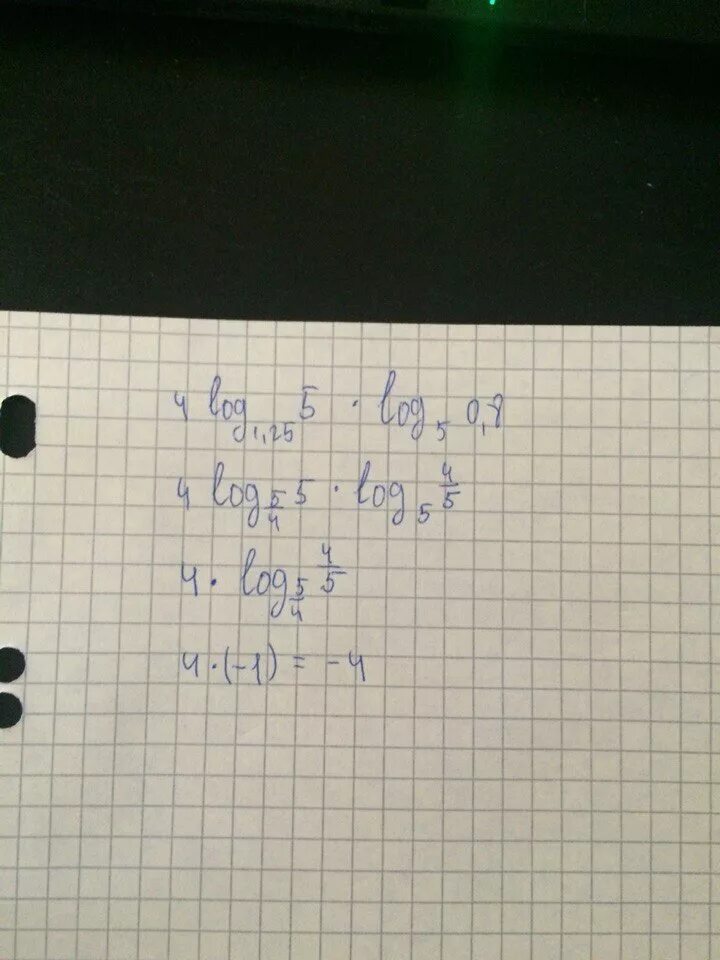 4 log₁,₂₅ 5 · log₅ 0,8
4 log_{5/4} 5 · log₅ 4/5
4 · log_{5/4} 4/5
4 · (-1) = -4